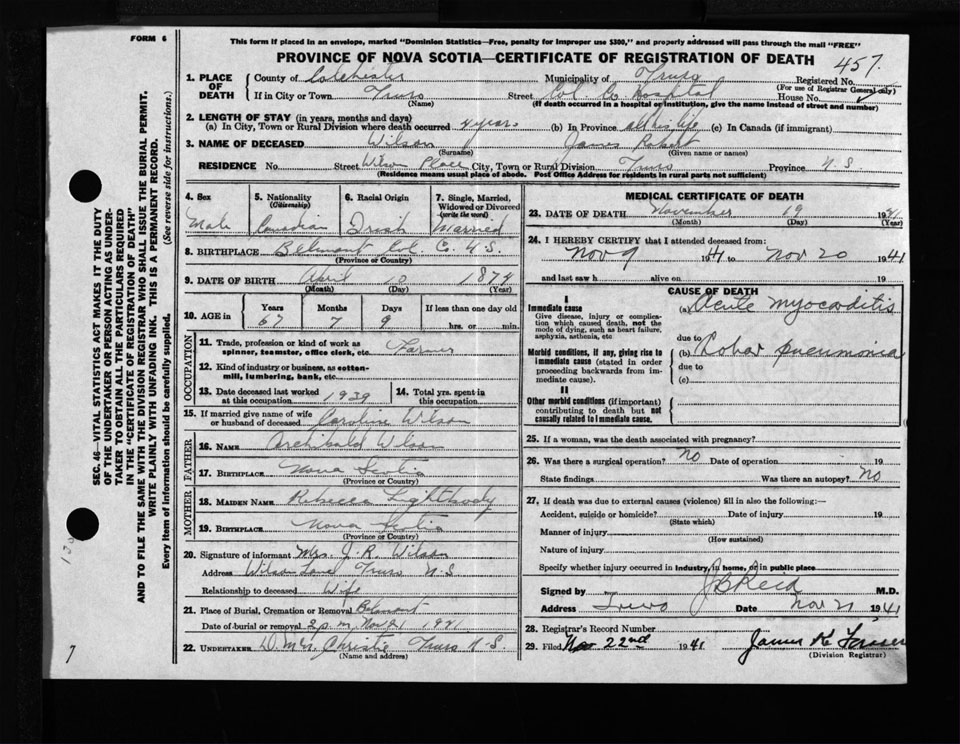 FORM 6
This form if placed in an envelope, marked "Dominion Statistics—Free, penalty for improper use $300," and properly addressed will pass through the mail "FREE"
PROVINCE OF NOVA SCOTIA—CERTIFICATE OF REGISTRATION OF DEATH 457.
1. PLACE OF DEATH County of Colchester Municipality of Truro Registered No.
(For use of Registrar General only)
If in City or Town Truro Street Col. Co. Hospital House No.
(Name) (If death occurred in a hospital or institution, give the name instead of street and number)
2. LENGTH OF STAY (in years, months and days)
(a) In City, Town or Rural Division where death occurred 4 years (b) In Province all his life (c) In Canada (if immigrant)
3. NAME OF DECEASED Wilson James Robert
(Surname) (Given name or names)
RESIDENCE No. Street Wilson Place City, Town or Rural Division Truro Province N.S
(Residence means usual place of abode. Post Office Address for residents in rural parts not sufficient)
4. Sex 5. Nationality (Citizenship) 6. Racial Origin 7. Single, Married, Widowed or Divorced (write the word)
Male Canadian Irish Married
8. BIRTHPLACE Belmont Col. Co. N.S.
(Province or Country)
9. DATE OF BIRTH April 10 1874
(Month) (Day) (Year)
10. AGE in Years Months Days If less than one day old
67 7 9 hrs. or min.
OCCUPATION
11. Trade, profession or kind of work as spinner, teamster, office clerk, etc. Farmer
12. Kind of industry or business, as cotton-mill, lumbering, bank, etc.
13. Date deceased last worked at this occupation 1939 14. Total yrs. spent in this occupation
15. If married give name of wife or husband of deceased Caroline Wilson
FATHER
16. NAME Archibald Wilson
17. BIRTHPLACE Nova Scotia
(Province or Country)
MOTHER
18. MAIDEN NAME Rebecca Lightbody
19. BIRTHPLACE Nova Scotia
(Province or Country)
20. Signature of informant Mrs. J. R. Wilson
Address Wilson Lane Truro N.S
Relationship to deceased Wife
21. Place of Burial, Cremation or Removal Belmont
Date of burial or removal 2 p.m. Nov 21 1941
22. UNDERTAKER Christie Truro N.S.
(Name and address)
MEDICAL CERTIFICATE OF DEATH
23. DATE OF DEATH November 19 1941
(Month) (Day) (Year)
24. I HEREBY CERTIFY that I attended deceased from:
Nov 9 1941 to Nov 20 1941
and last saw h alive on 19
CAUSE OF DEATH
I
Immediate cause (a) Acute myocarditis
Give disease, injury or complication which caused death, not the mode of dying, such as heart failure, asphyxia, asthenia, etc
due to
Morbid conditions, if any, giving rise to immediate cause (stated in order proceeding backwards from immediate cause). (b) Lobar pneumonia
due to
(c)
II
Other morbid conditions (if important) contributing to death but not causally related to immediate cause.
25. If a woman, was the death associated with pregnancy?
26. Was there a surgical operation? No Date of operation 19
State findings Was there an autopsy? No
27. If death was due to external causes (violence) fill in also the following:—
Accident, suicide or homicide? Date of injury 19
(State which)
Manner of injury
(How sustained)
Nature of injury
Specify whether injury occurred in industry, in home, or in public place
Signed by J B Reid M.D.
Address Truro Date Nov 21 1941
28. Registrar's Record Number
29. Filed Nov 22nd 1941 James K. Fraser
(Division Registrar)
SEC. 46—VITAL STATISTICS ACT MAKES IT THE DUTY
OF THE UNDERTAKER OR PERSON ACTING AS UNDER-
TAKER TO OBTAIN ALL THE PARTICULARS REQUIRED
IN THE "CERTIFICATE OF REGISTRATION OF DEATH"
AND TO FILE THE SAME WITH THE DIVISION REGISTRAR WHO SHALL ISSUE THE BURIAL PERMIT.
WRITE PLAINLY WITH UNFADING INK. THIS IS A PERMANENT RECORD.
Every item of information should be carefully supplied. (See reverse side for instructions.)
7